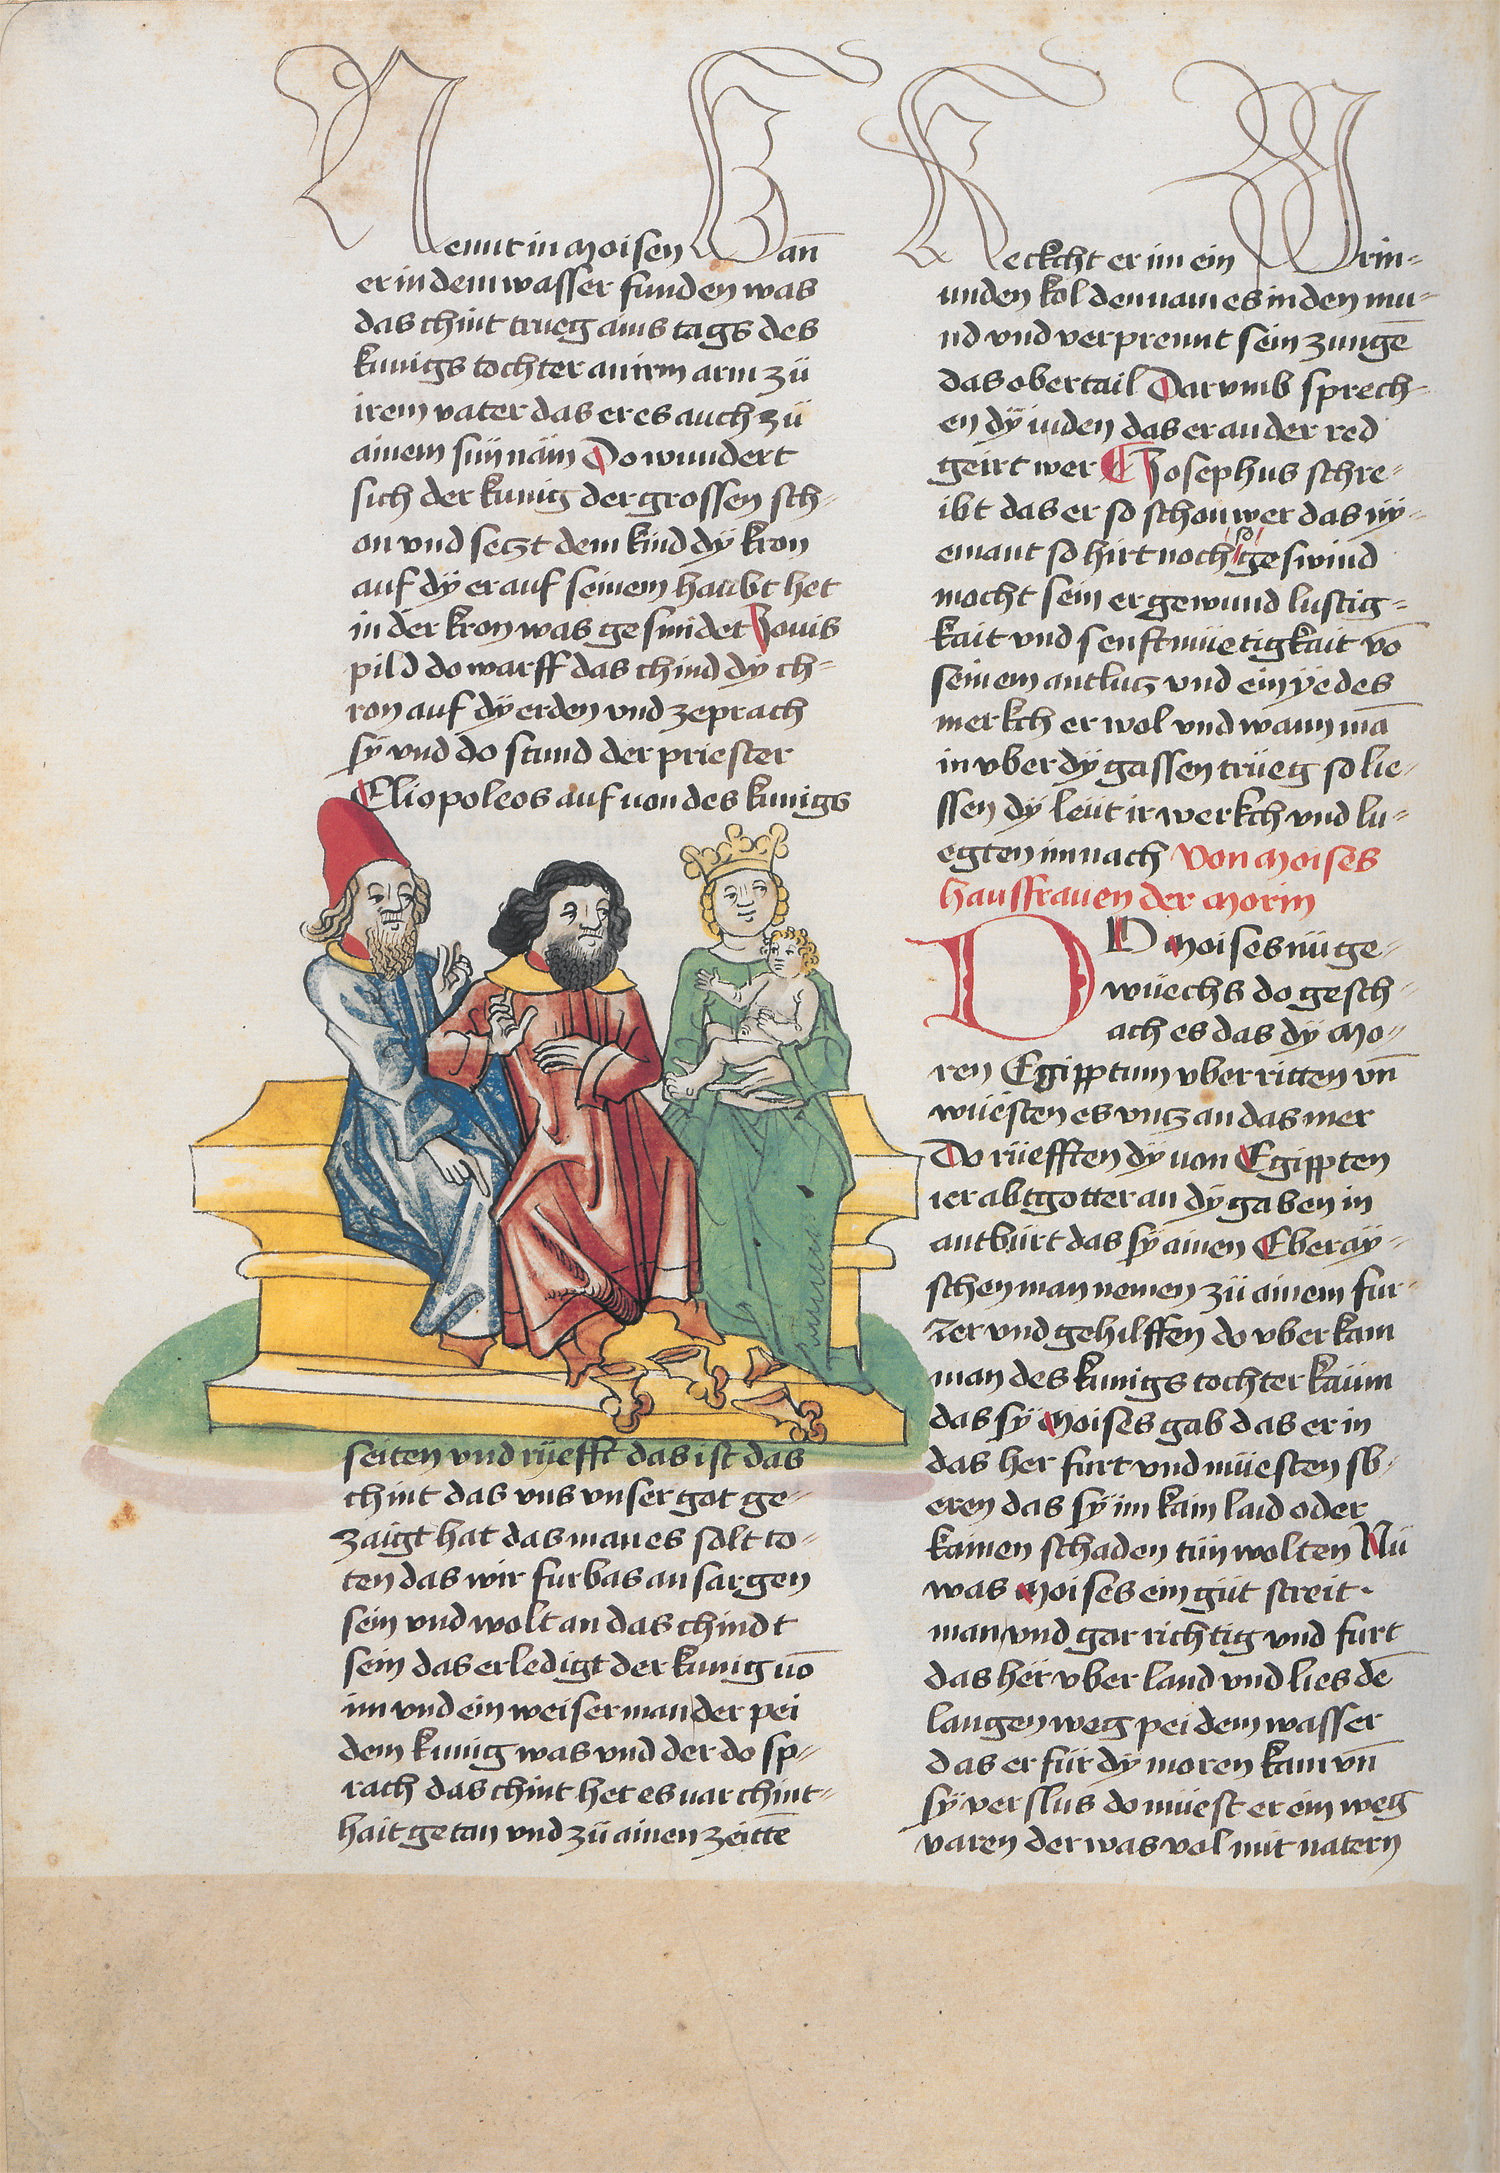 Nennt in Moisen Wan̄
er in dem wasser funden was
das chint trueg ains tags des
kunigs tochter an irm arm zü
irem vater das er es auch zü
ainem sün näm Do wundert
sich der kunig der grossen sch-
on vnd seczt dem kind dÿ kron
auf dÿ er auf seinem haubt het
in der kron was gesmidet Jouis
pild do warff das chind dÿ ch-
ron auf dÿ erden vnd zeprach
sÿ vnd do stund der priester
Eliopoleos auf uon des kunigs
seiten vnd rüefft das ist das
chint das vns vnser got ge-
zaigt hat das man es solt to-
ten das wir furbas an sargen
sein vnd wolt an das chindt
sein das erledigt der kunig uō
im vnd ein weiser man der pei
dem kunig was vnd der do sp-
rach das chint het es uar chint-
hait getan vnd zü ainen zeittē
Reckcht er im ein Prin-
unden kol den nam es in den mu-
nd vnd verprennt sein zungē
das obertail Darvmb sprech-
en dÿ juden das er an der red
geirt wer Josephus schre-
ibt das er so schon wer das nÿ-
emant so hirt noch so geswind
mocht sein er gewund lustig-
kait vnd senftmüetigkait vō
seinem antlucz vnd ein ÿedes
merkch er wol vnd wann mā
in vber dÿ gassen trüeg so lie-
ssen dÿ leüt ir werkch vnd lu-
egten im nach Von Moises
hausfrauen der Morin
DO Moises nü ge-
wüechs do gesch-
ach es das dÿ Mo-
ren Egipptum vberritten vn̄
wüesten es vncz an das mer
Do rüefften dÿ uon Egippten
ier abtgotter an dÿ gaben in
antbürt das sÿ ainen Ebraÿ-
schen man nemen zü ainem fur-
rer vnd gehilffen do vberkam
man des kunigs tochter kaüm
das sÿ Moises gab das er in
das her furt vnd müesten sb-
eren das sÿ im kain laid oder
kainen schaden tün wolten Nü
was Moises ein güt streit-
man vnd gar richtig vnd furt
das her vber land vnd lies dē
langen weg pei dem wasser
das er für dÿ moren kam vn̄
sÿ verslus do müest er ein weg
varen der was vol mit natern